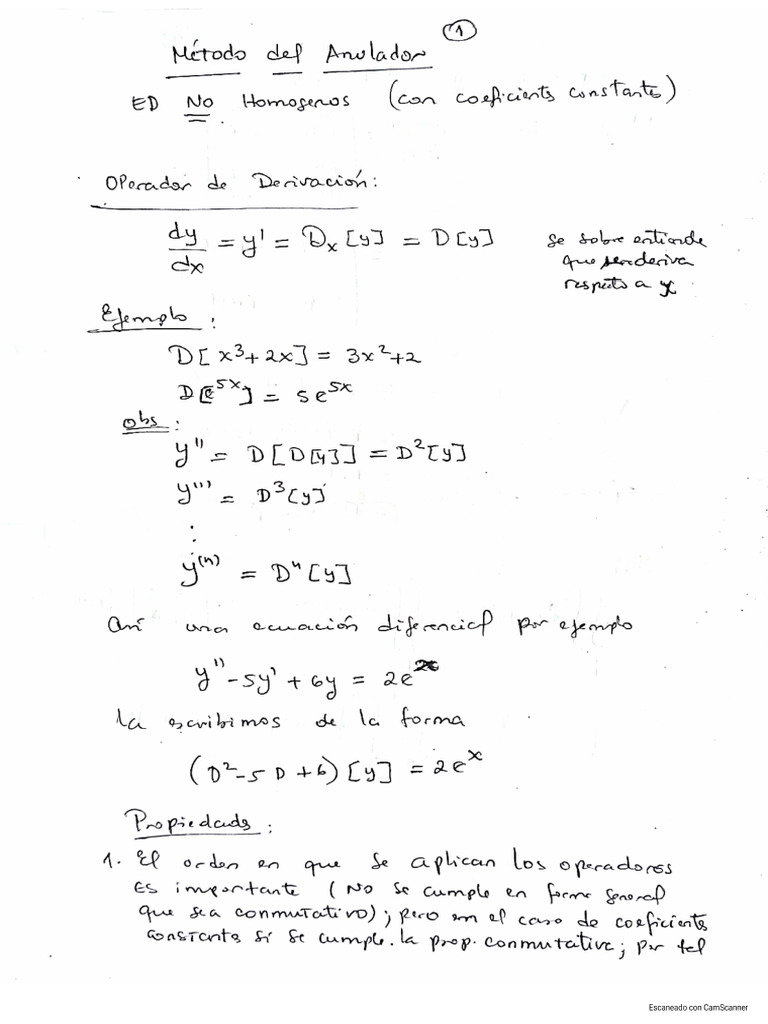 1
Método del Anulador
ED No Homogenos (con coeficients constante)
Operador de Derivación:
dy/dx = y' = Dx[y] = D[y]
se sobre entiende
que se deriva
respecto a x
Ejemplo:
D[x³+2x] = 3x²+2
D[e^5x] = 5e^5x
obs:
y'' = D[D[y]] = D²[y]
y''' = D³[y]
⋮
y^(n) = D^n[y]
Así una ecuación diferencial por ejemplo
y''-5y'+6y = 2e^x
la escribimos de la forma
(D²-5D+6)[y] = 2e^x
Propiedads:
1. El orden en que se aplican los operadores
es importante (No se cumple en forma general
que sea conmutativo); pero en el caso de coeficients
constants si se cumple. la prop. conmutativa; por tal
Escaneado con CamScanner